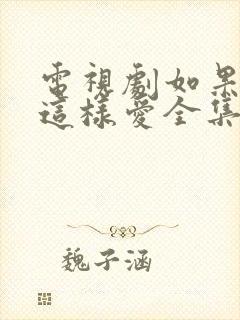 電視劇如果
這樣愛全集
魏子涵